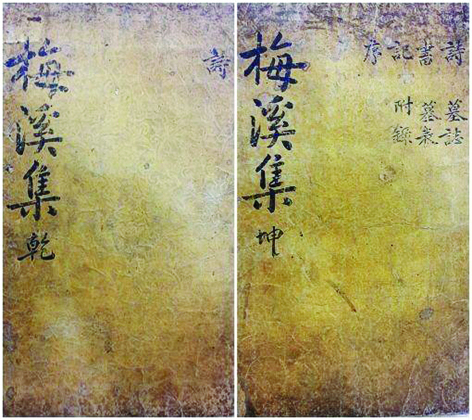 梅溪集 乾
詩
梅溪集 坤
詩 墓誌
書 墓
記 附錄
序